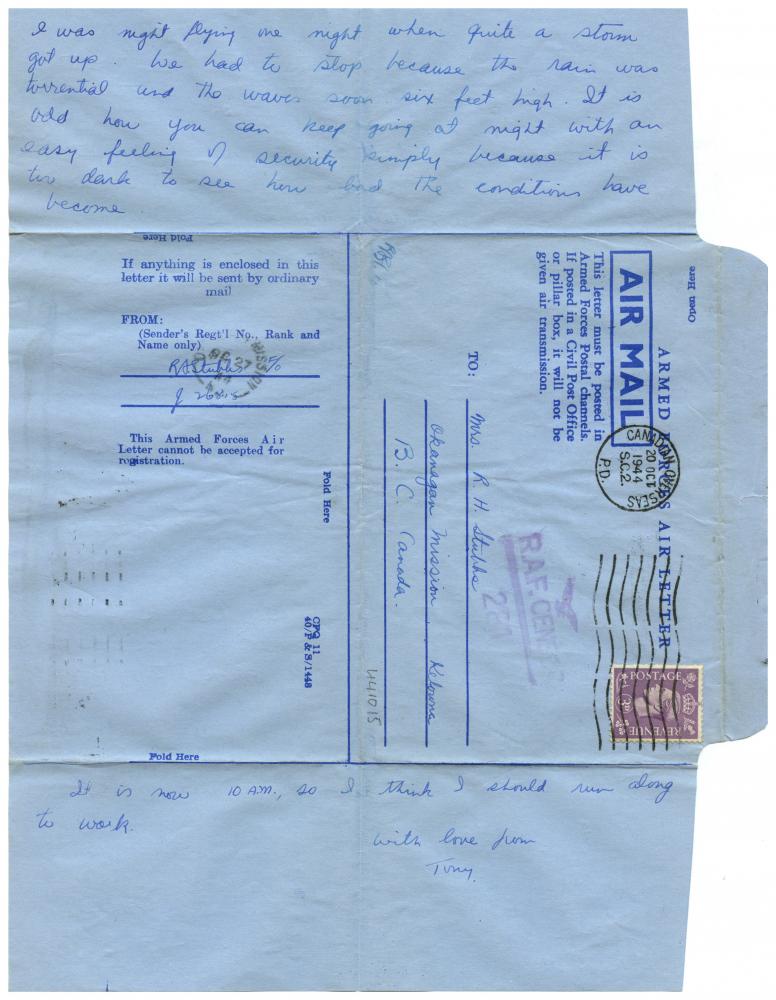 I was night flying one night when quite a storm
got up. We had to stop because the rain was
torrential and the waves soon six feet high. It is
odd how you can keep going at night with an
easy feeling of security simply because it is
too dark to see how bad the conditions have
become.
Fold Here
If anything is enclosed in this
letter it will be sent by ordinary
mail
FROM:
(Sender's Regt'l No., Rank and
Name only)
RAStubbs F/O
MISSION
27
J
This Armed Forces Air
Letter cannot be accepted for
registration.
Fold Here
CPQ 11
40/P & S/1448
Fold Here
Open Here
ARMED FORCES AIR LETTER
AIR MAIL
This letter must be posted in
Armed Forces Postal channels.
If posted in a Civil Post Office
or pillar box, it will not be
given air transmission.
CANADIAN OVERSEAS
20 OCT
1944
S.C.2.
P.D.
POSTAGE
REVENUE
3D
R.A.F. CENSOR
TO:
Mrs. R. H. Stubbs
Okanagan Mission, Kelowna
B. C. Canada.
441015
It is now 10 A.M., so I think I should run along
to work.
with love from
Tony.